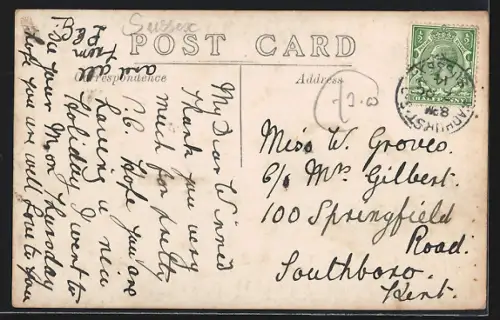 Sussex
POST CARD
Correspondence
Address
My Dear Winnie
Thank you very
much for pretty
P.C. hope you are
having a nice
Holiday I went to
see your M. on Thursday
hope you are well, love to you
and all
from
Miss W. Groves.
c/o Mrs Gilbert.
100 Springfield
Road.
Southboro.
Kent.
3.00
WADHURST